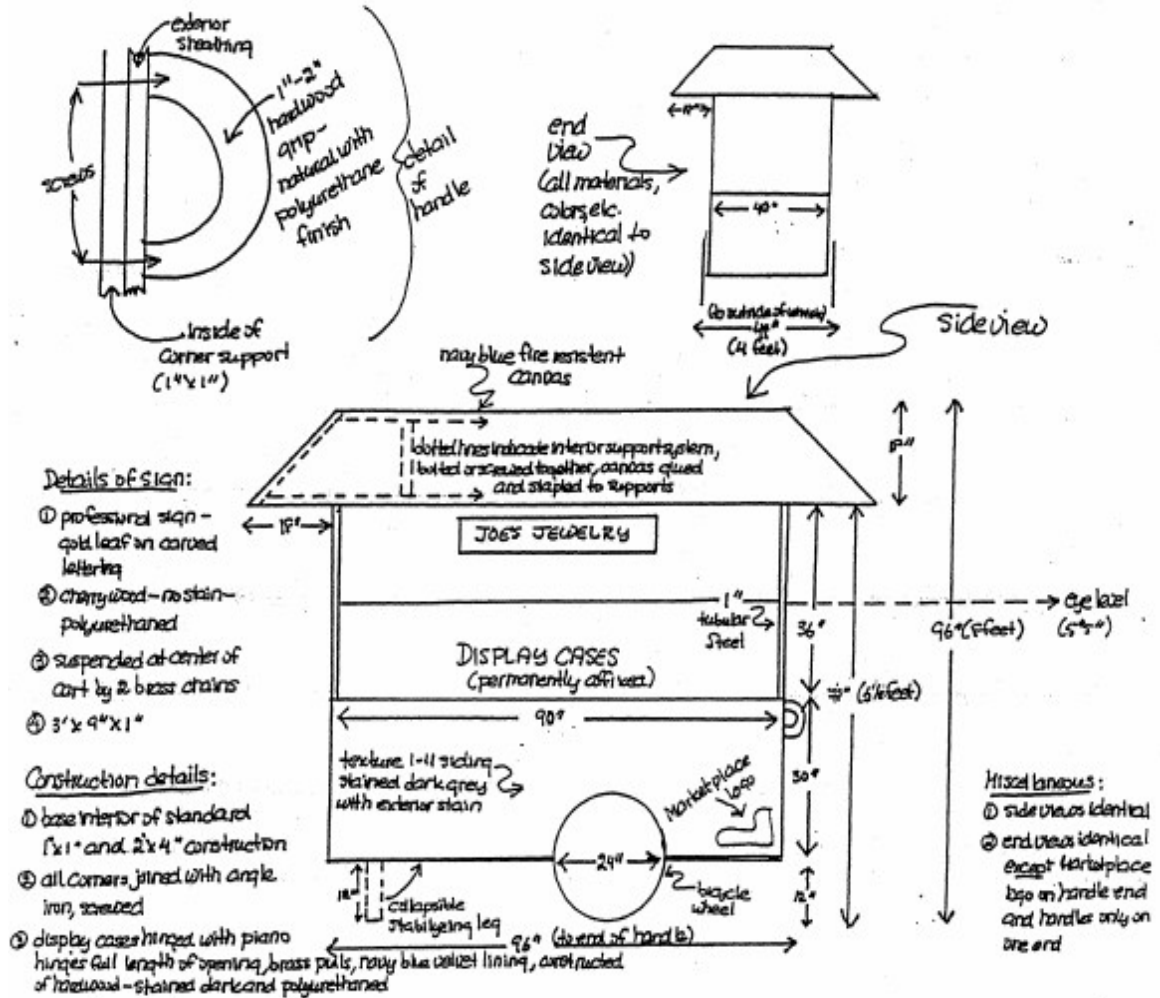 exterior
sheathing
1"-2"
hardwood
grip-
natural with
polyurethane
finish
screws
detail
of
handle
inside of
corner support
(1"x1")
end
view
(all materials,
colors, etc.
identical to
side view)
40"
(to outside of wheels)
(4 feet)
side view
navy blue fire resistent
canvas
dotted lines indicate interior support system,
bolted or screwed together, canvas glued
and stapled to supports
18"
JOE'S JEWELRY
1"
tubular
steel
eye level
36"
96" (8 feet)
DISPLAY CASES
(permanently affixed)
90"
30"
texture 1-11 siding
stained dark grey
with exterior stain
Marketplace
logo
24"
12"
12"
collapsible
stabilizing leg
bicycle
wheel
96" (to end of handle)
Details of sign:
① professional sign-
gold leaf on carved
lettering
② cherry wood-no stain-
polyurethaned
③ suspended at center of
cart by 2 brass chains
④ 3'x 9"x 1"
Construction details:
① base interior of standard
1"x1" and 2"x4" construction
② all corners joined with angle
iron, screwed
③ display cases hinged with piano
hinges full length of opening, brass pulls, navy blue velvet lining, constructed
of hardwood-stained dark and polyurethaned
Miscellaneous:
① side views identical
② end views identical
except Marketplace
logo on handle end
and handles only on
one end